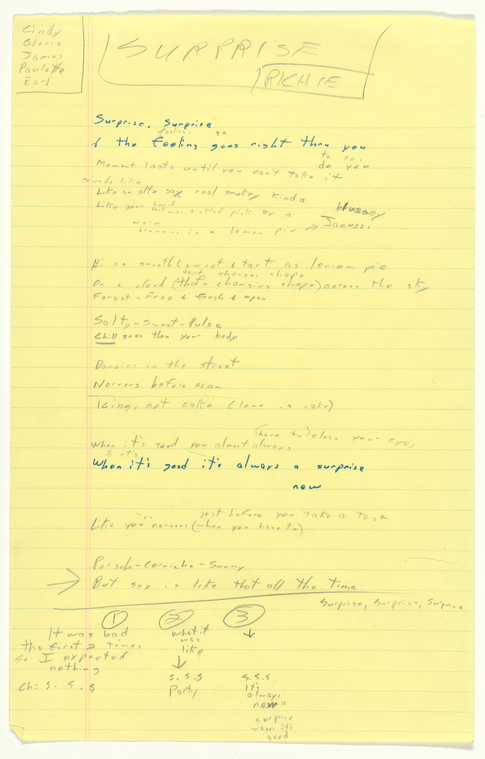 Cindy
Gloria
James
Paulette
Earl
SURPRISE
RICHIE
Surprise, Surprise
feeling go
& the feeling goes right thru you
to you
do you
Moment lasts until you can't take it
sounds like
Like an alto sax real smokey kinda
bluesey
Like your heart
by a
Jacuzzi
warm
is a lemon pie
Hi on smooth sweet & tart as lemon pie
that changes shape
On a cloud (that changing shape) across the sky
Forest-free & fresh & open
Salty-Sweat-Pulse
Chill goes thru your body
Dancing in the street
Nervous before exam
Icing, not cake (love is cake)
(have to) close your eyes
when it's good you almost always
if it's
When it's good it's always a surprise
new
just before you take a test
Like you nervous (when you have to)
Porsche-Carriche-Sunny
But say is like that all the time
Surprise, Surprise, Surprise
1 2 3
It was bad
the first 2 times
so I expected
nothing
Ch: S. S. S
what it
was
like
S. S. S
Party
S. S. S.
it's
always
new
surprise
when it's
good